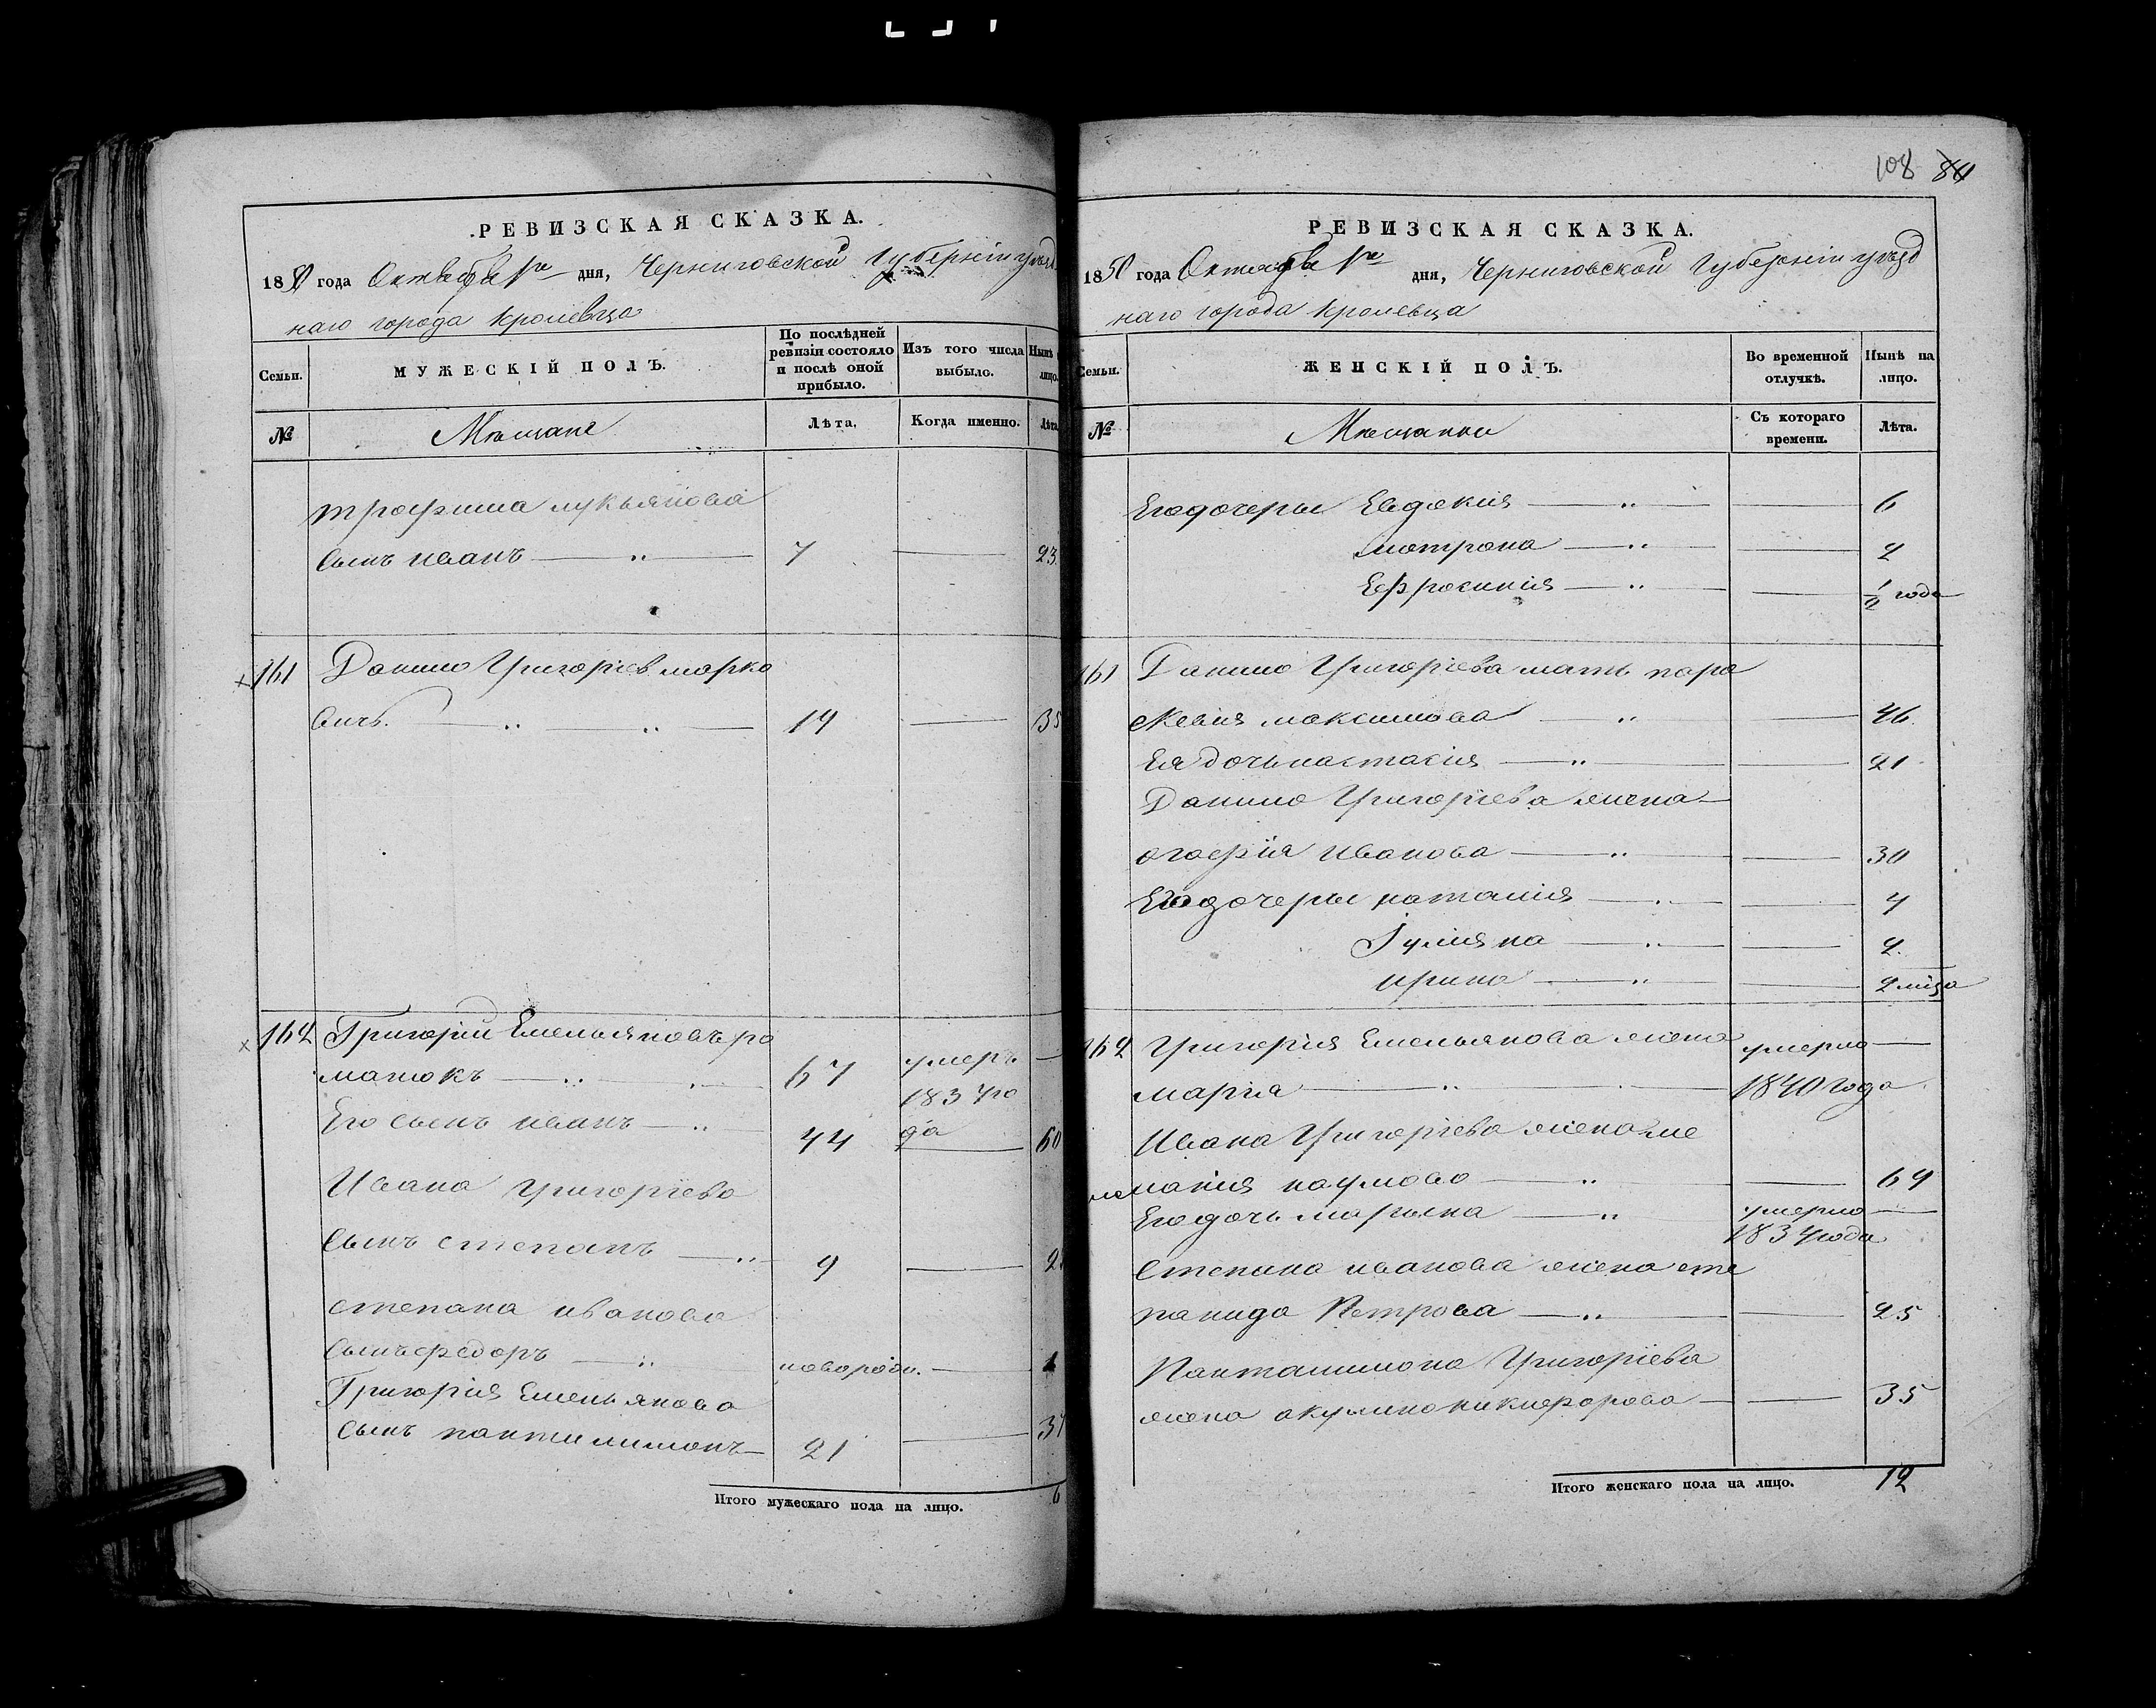 108 80
РЕВИЗСКАЯ СКАЗКА.
1850 года Октября 1го дня, Черниговской Губернии уезд
наго города Кролевца
Семьи.
МУЖЕСКІЙ ПОЛЪ.
По послѣдней ревизіи состояло и послѣ оной прибыло.
Изъ того числа выбыло.
Нынѣ лицо.
№
Мѣщане
Лѣта.
Когда именно.
Лѣта
трофима лукьянова
сынъ иванъ 7 23
161 Данило Григоріев марко
вичъ. 19 35
162 Григорій Емельяновъ ро
манюкъ 67 умеръ
1837 го
да
Его сынъ иванъ 44 60
Ивана Григоріева
сынъ степанъ 9 2
степана иванова
сынъ федоръ новорожд. 1
Григорія Емельянова
сынъ пантилимонъ 21 37
Итого мужескаго пола на лицо. 6
РЕВИЗСКАЯ СКАЗКА.
1850 года Октября 1го дня, Черниговской Губерніи уезд
наго города Кролевца
Семьи.
ЖЕНСКІЙ ПОЛЪ.
Во временной отлучкѣ.
Нынѣ на лицо.
№
Мѣщанки
Съ котораго времени.
Лѣта.
Его дочеры Евдокия 6
мотрона 2
Ефросиния ½ года
161 Данило Григоріева мать пара
скевия максимова 46
Ея дочь настасия 21
Данило Григоріева жена
огафія Иванова 30
Его дочеры наталия 4
Іулияна 2.
ирина 2 мѣца
162 Григорія Емельянова жена умерла
марія 1840 года
Ивана Григоріева жена ме
лания наумова 69
Его дочь марьяна умерла
1834 года
Степана иванова жена сте
панида Петрова 25
Панталимона Григоріева
жена акулина никифорова 35
Итого женскаго пола на лицо. 12